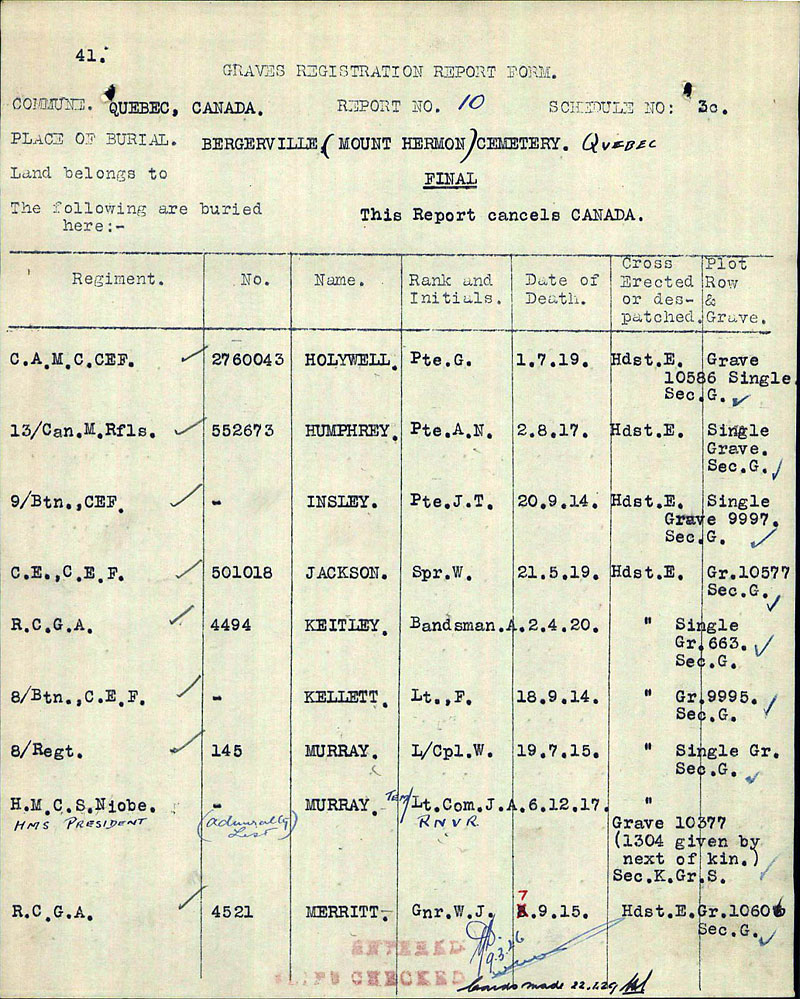 41.
GRAVES REGISTRATION REPORT FORM.
COMMUNE. QUEBEC, CANADA. REPORT NO. 10 SCHEDULE NO: 3c.
PLACE OF BURIAL. BERGERVILLE (MOUNT HERMON) CEMETERY. QUEBEC
Land belongs to FINAL
The following are buried here:-
This Report cancels CANADA.
Regiment. No. Name. Rank and Initials. Date of Death. Cross Erected or des-patched. Plot Row & Grave.
C.A.M.C.CEF. 2760043 HOLYWELL. Pte.G. 1.7.19. Hdst.E. Grave
10586 Single.
Sec.G.
13/Can.M.Rfls. 552673 HUMPHREY. Pte.A.N. 2.8.17. Hdst.E. Single
Grave.
Sec.G.
9/Btn.,CEF. - INSLEY. Pte.J.T. 20.9.14. Hdst.E. Single
Grave 9997.
Sec.G.
C.E.,C.E.F. 501018 JACKSON. Spr.W. 21.5.19. Hdst.E. Gr.10577
Sec.G.
R.C.G.A. 4494 KEITLEY. Bandsman.A. 2.4.20. " Single
Gr.663.
Sec.G.
8/Btn.,C.E.F. - KELLETT. Lt.,F. 18.9.14. " Gr.9995.
Sec.G.
8/Regt. 145 MURRAY. L/Cpl.W. 19.7.15. " Single Gr.
Sec.G.
H.M.C.S.Niobe. - MURRAY. Tem/ Lt.Com.J.A. 6.12.17. "
HMS PRESIDENT (Admiralty List) RNVR
Grave 10377
(1304 given by
next of kin.)
Sec.K.Gr.S.
R.C.G.A. 4521 MERRITT. Gnr.W.J. 7.9.15. Hdst.E. Gr.10606
Sec.G.
9.3.26
ENTERED
SLIPS CHECKED
Cards made 22.1.29